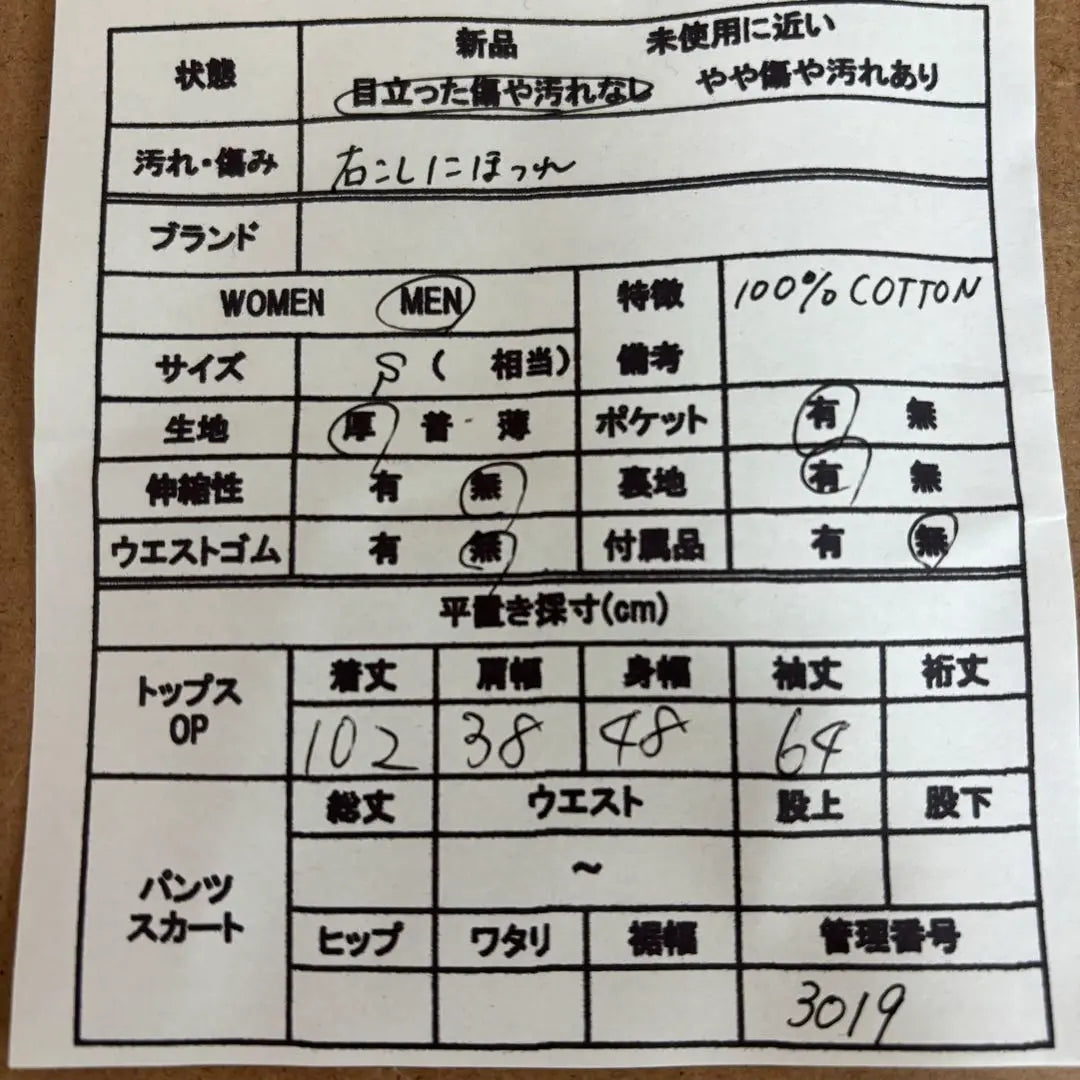 状態 新品 未使用に近い
目立った傷や汚れなし やや傷や汚れあり
汚れ・傷み 右こしにほつれ
ブランド
WOMEN MEN 特徴 100% COTTON
サイズ S ( 相当) 備考
生地 厚 普 薄 ポケット 有 無
伸縮性 有 無 裏地 有 無
ウエストゴム 有 無 付属品 有 無
平置き採寸(cm)
トップス OP 着丈 肩幅 身幅 袖丈 裄丈
102 38 48 64
パンツ スカート 総丈 ウエスト 股上 股下
~
ヒップ ワタリ 裾幅 管理番号
3019